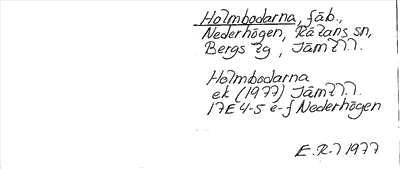 Holmbodarna, fäb.,
Nederhögen, Rätans sn,
Bergs tg, Jämtl.
Holmbodarna
ek (1977) Jämtl.
17E 4-5 e-f Nederhögen
E.R-7 1977